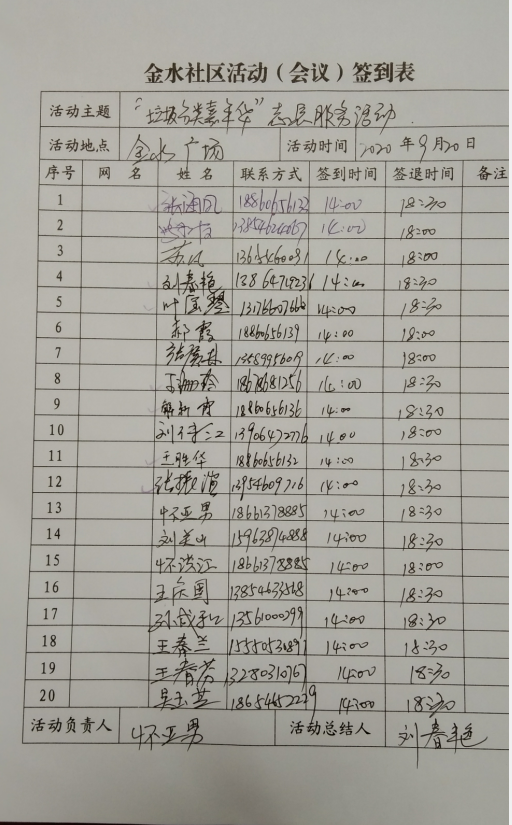 金水社区活动（会议）签到表
活动主题 “垃圾分类嘉年华”志愿服务活动
活动地点 金水广场 活动时间 2020年9月20日
序号 网 名 姓 名 联系方式 签到时间 签退时间 备注
1 14:00 18:30
2 14:00 18:00
3 14:00 18:00
4 刘春艳 14:00 18:30
5 叶宝琴 13176607660 14:00 18:30
6 郝霞 18860656139 14:00 18:00
7 14:00 18:00
8 18678681256 14:00 18:30
9 18860656136 14:00 18:30
10 13906472776 14:00 18:00
11 王胜华 18860656132 14:00 18:30
12 张振滨 13954609716 14:00 18:30
13 怀亚男 18661378885 14:00 18:30
14 刘美山 15963874888 14:00 18:30
15 怀洪江 18661378885 14:00 18:00
16 王庆国 13854633568 14:00 18:30
17 13561000099 14:00 18:30
18 王春兰 14:00 18:30
19 王春芳 14:00 18:30
20 吴玉芝 18654652229 14:00 18:30
活动负责人 怀亚男 活动总结人 刘春艳